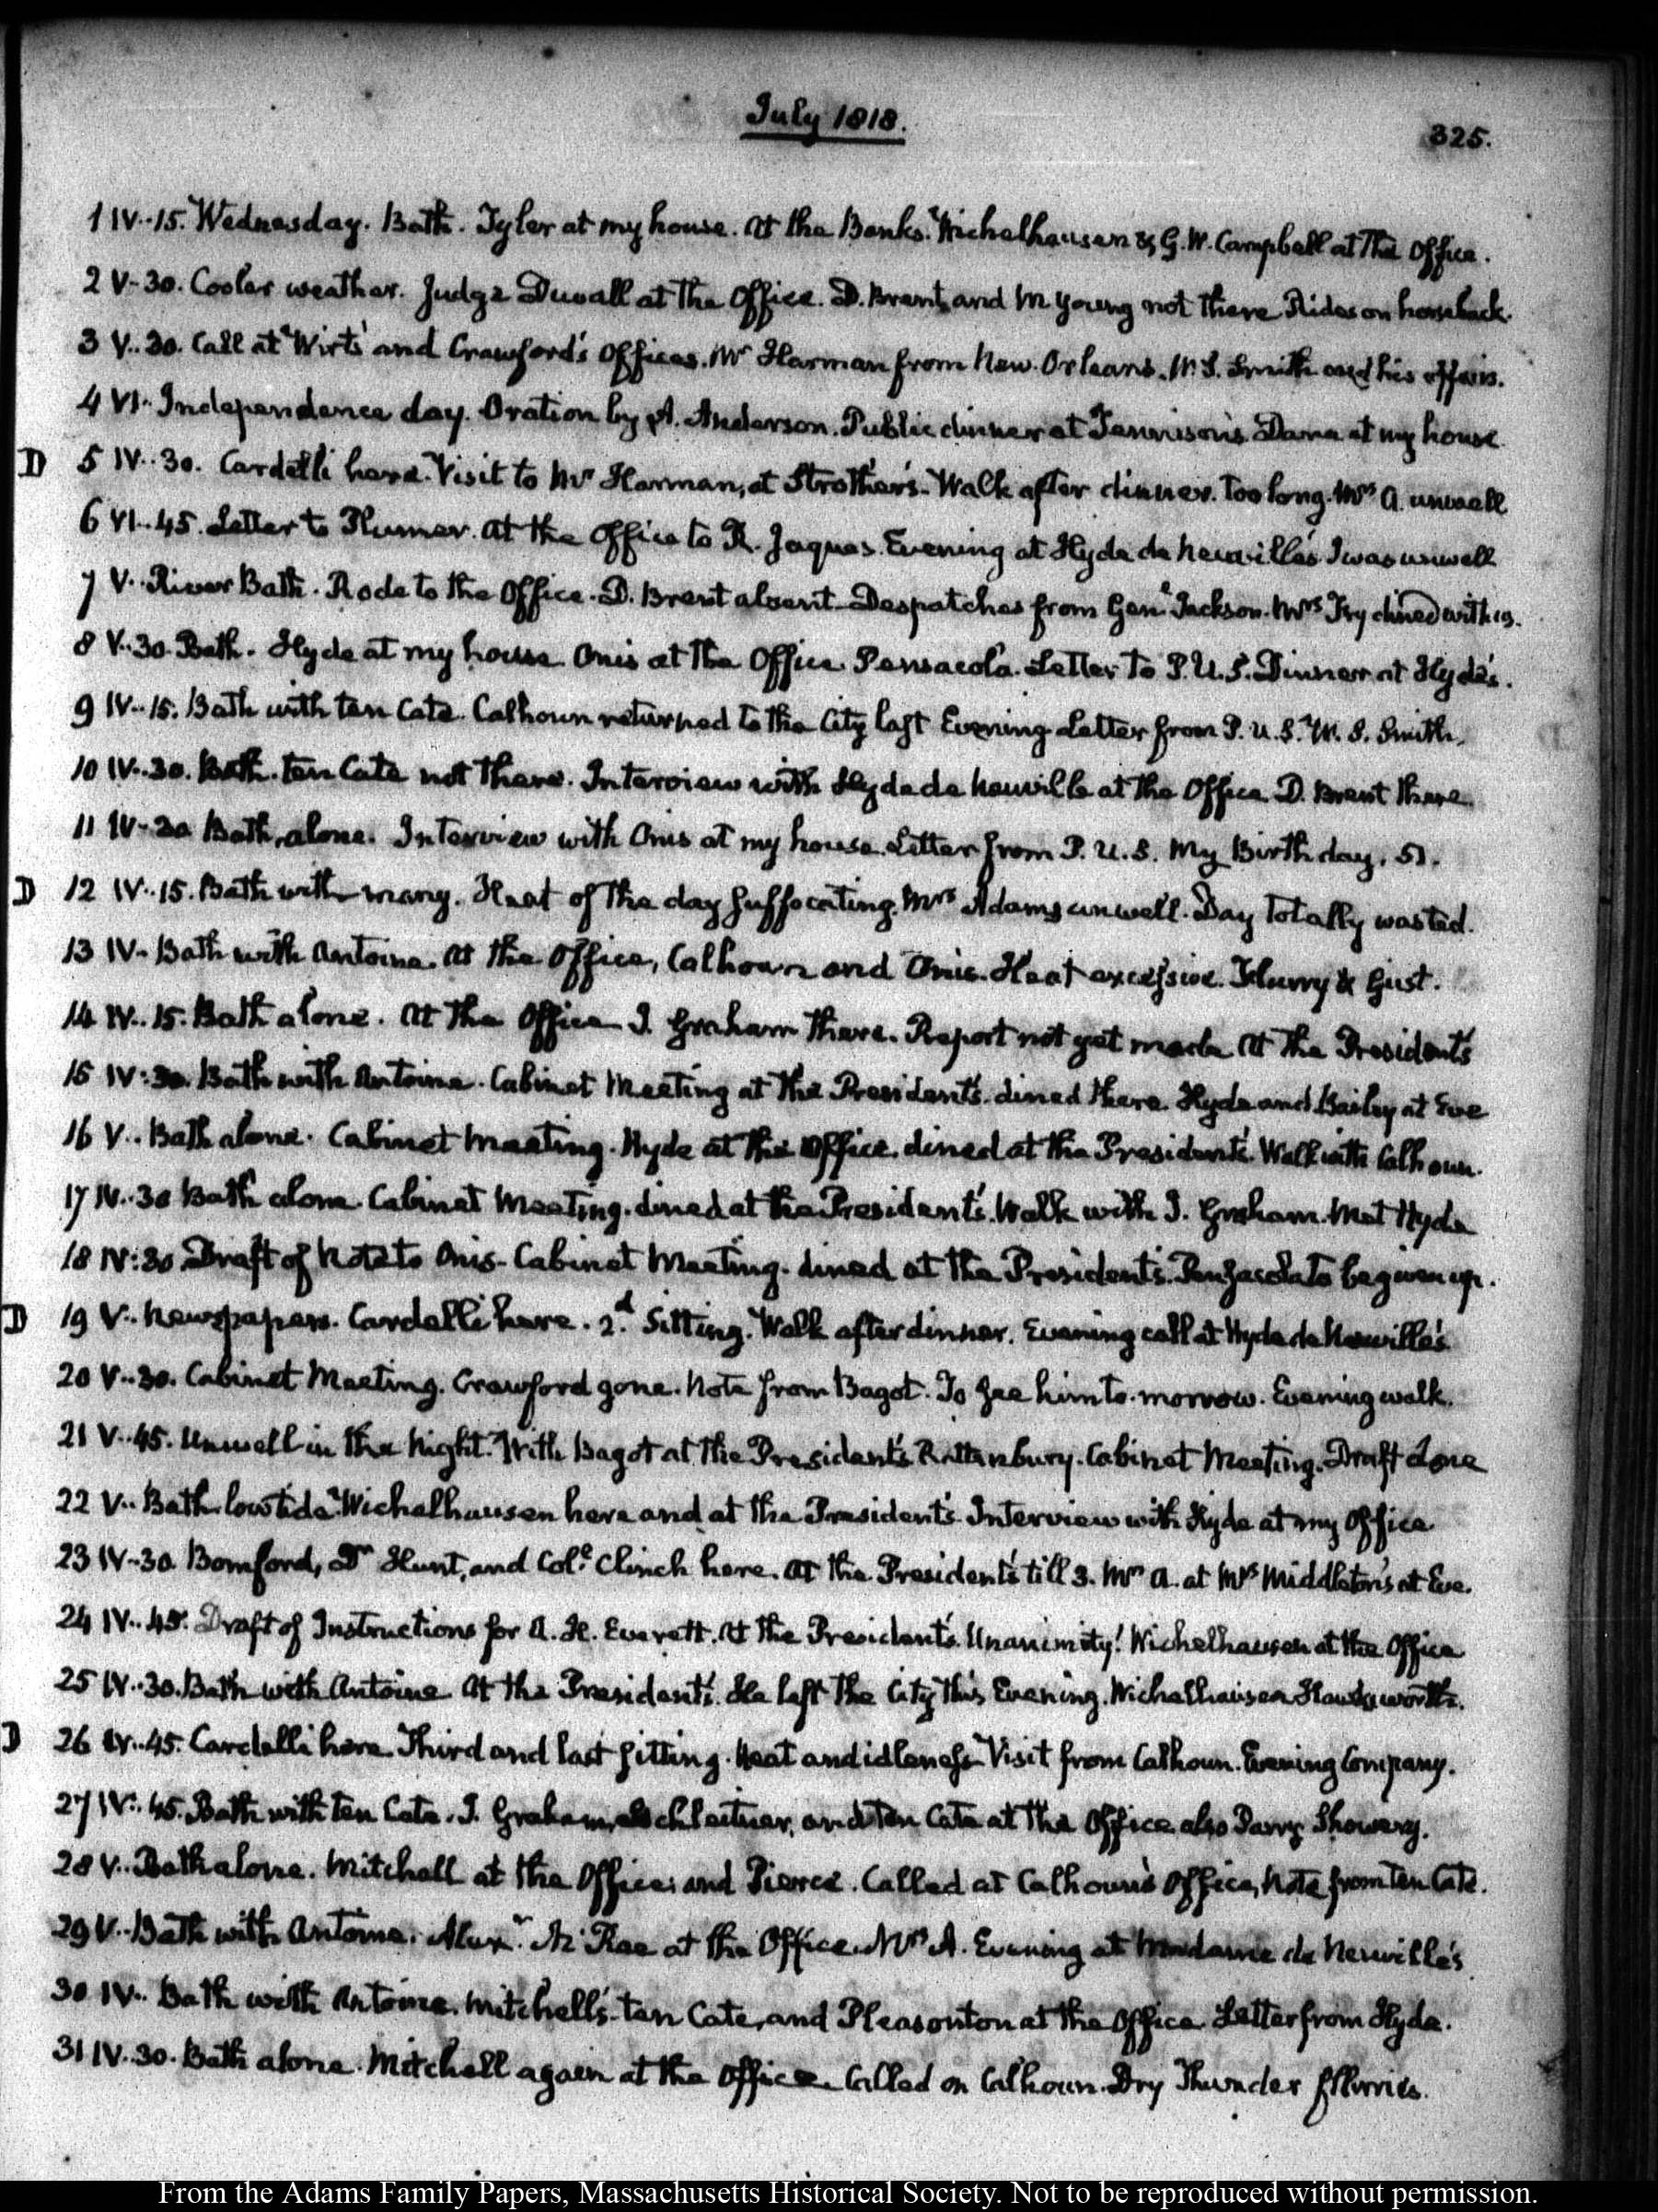 July 1818.
325.
1 IV..15. Wednesday. Bath. Tyler at my house. At the Banks. Wichelhausen & G. W. Campbell at the Office.
2 V-30. Cooler weather. Judge Duvall at the Office. D. Brent and Mr Young not there Rides on horseback.
3 V..30. Call at Wirt's and Crawford's Offices. Mr Harman from New-Orleans. W. S. Smith and his affairs.
4 VI. Independence day. Oration by A. Anderson. Public dinner at Tennison's Dana at my house
D 5 IV..30. Cardelli here. Visit to Mr Harman, at Strother's. Walk after dinner. Too long. Mrs A. unwell
6 VI..45. Letter to Plumer. At the Office to R. Jaques. Evening at Hyde de Neuville's I was unwell
7 V.. River Bath. Rode to the Office. D. Brent absent. Despatches from Genl. Jackson. Mrs Fry dined with us.
8 V..30. Bath. Hyde at my house. Onis at the Office Pensacola. Letter to P. U. S. Dinner at Hyde's.
9 IV..15. Bath with ten Cate. Calhoun returned to the City last Evening. Letter from P. U. S. W. S. Smith.
10 IV..30. Bath. ten Cate not there. Interview with Hyde de Neuville at the Office D. Brent there.
11 IV-30 Bath, alone. Interview with Onis at my house. Letter from P. U. S. My Birth day, 51.
D 12 IV..15. Bath with many. Heat of the day suffocating. Mrs Adams unwell. Day totally wasted.
13 IV- Bath with Antoine. At the Office, Calhoun and Onis. Heat excessive. Flurry & Gust.
14 IV..15. Bath alone. At the Office J. Graham there. Report not yet made At the President's
15 IV:30. Bath with Antoine. Cabinet Meeting at the President's. dined there. Hyde and Bailey at Eve
16 V.. Bath alone. Cabinet Meeting. Hyde at the Office. dined at the President's. Walk with Calhoun.
17 IV..30 Bath alone. Cabinet Meeting. dined at the President's. Walk with J. Graham. Met Hyde
18 IV:30 Draft of Note to Onis. Cabinet Meeting. dined at the President's. Pensacola to be given up.
D 19 V.. Newspapers. Cardelli here. 2d. Sitting. Walk after dinner. Evening call at Hyde de Neuville's
20 V..30. Cabinet Meeting. Crawford gone. Note from Bagot. To see him to-morrow. Evening walk.
21 V..45. Unwell in the Night. With Bagot at the President's Rattenbury. Cabinet Meeting. Draft done
22 V.. Bath. low tide. Wichelhausen here and at the President's. Interview with Hyde at my Office
23 IV-30. Bomford, Dr Hunt, and Coll. Clinch here. At the President's till 3. Mrs A. at Mrs Middleton's at Eve.
24 IV..45. Draft of Instructions for A. H. Everett. At the President's. Unanimity! Wichelhausen at the Office
25 IV..30. Bath with Antoine At the President's. He left the City this Evening. Wichelhausen
D 26 IV..45. Cardelli here. Third and last sitting. Heat and idleness Visit from Calhoun. Evening Company.
27 IV..45. Bath with ten Cate. J. Graham, and ten Cate at the Office also Parry Showery.
28 V.. Bath alone. Mitchell at the Office; and Pierce. Called at Calhoun's Office, Note from ten Cate.
29 V.. Bath with Antoine. Alexr. McRae at the Office. Mrs A. Evening at Madame de Neuville's
30 IV.. Bath with Antoine. Mitchell's- ten Cate, and Pleasonton at the Office Letter from Hyde.
31 IV..30. Bath alone. Mitchell again at the Office. Called on Calhoun. Dry Thunder flurries.
From the Adams Family Papers, Massachusetts Historical Society. Not to be reproduced without permission.